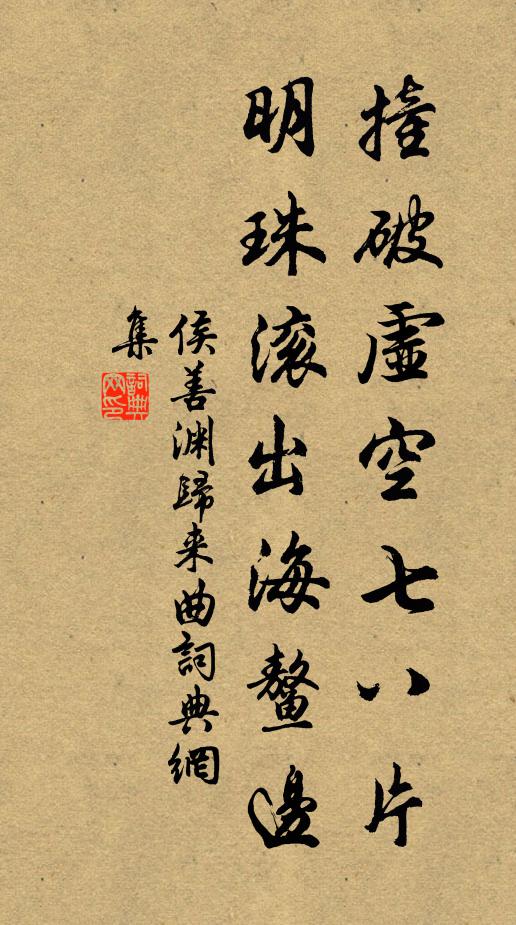 撞破虛空七八片
明珠滚出海鼇邊
侯善渊歸来曲詞典網
集
詞典
网印